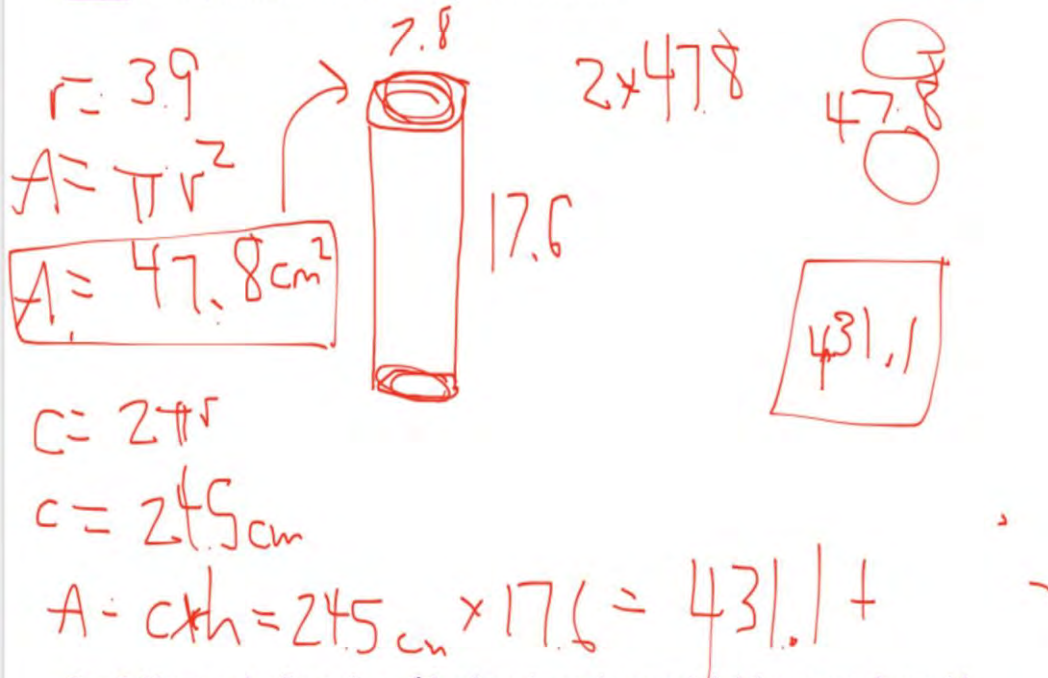 r= 3.9
A= πr²
A= 47.8cm²
7.8
17.6
2×47.8
47.8
431.1
c= 2πr
c= 24.5cm
A= c×h = 24.5cm × 17.6 = 431.1 +